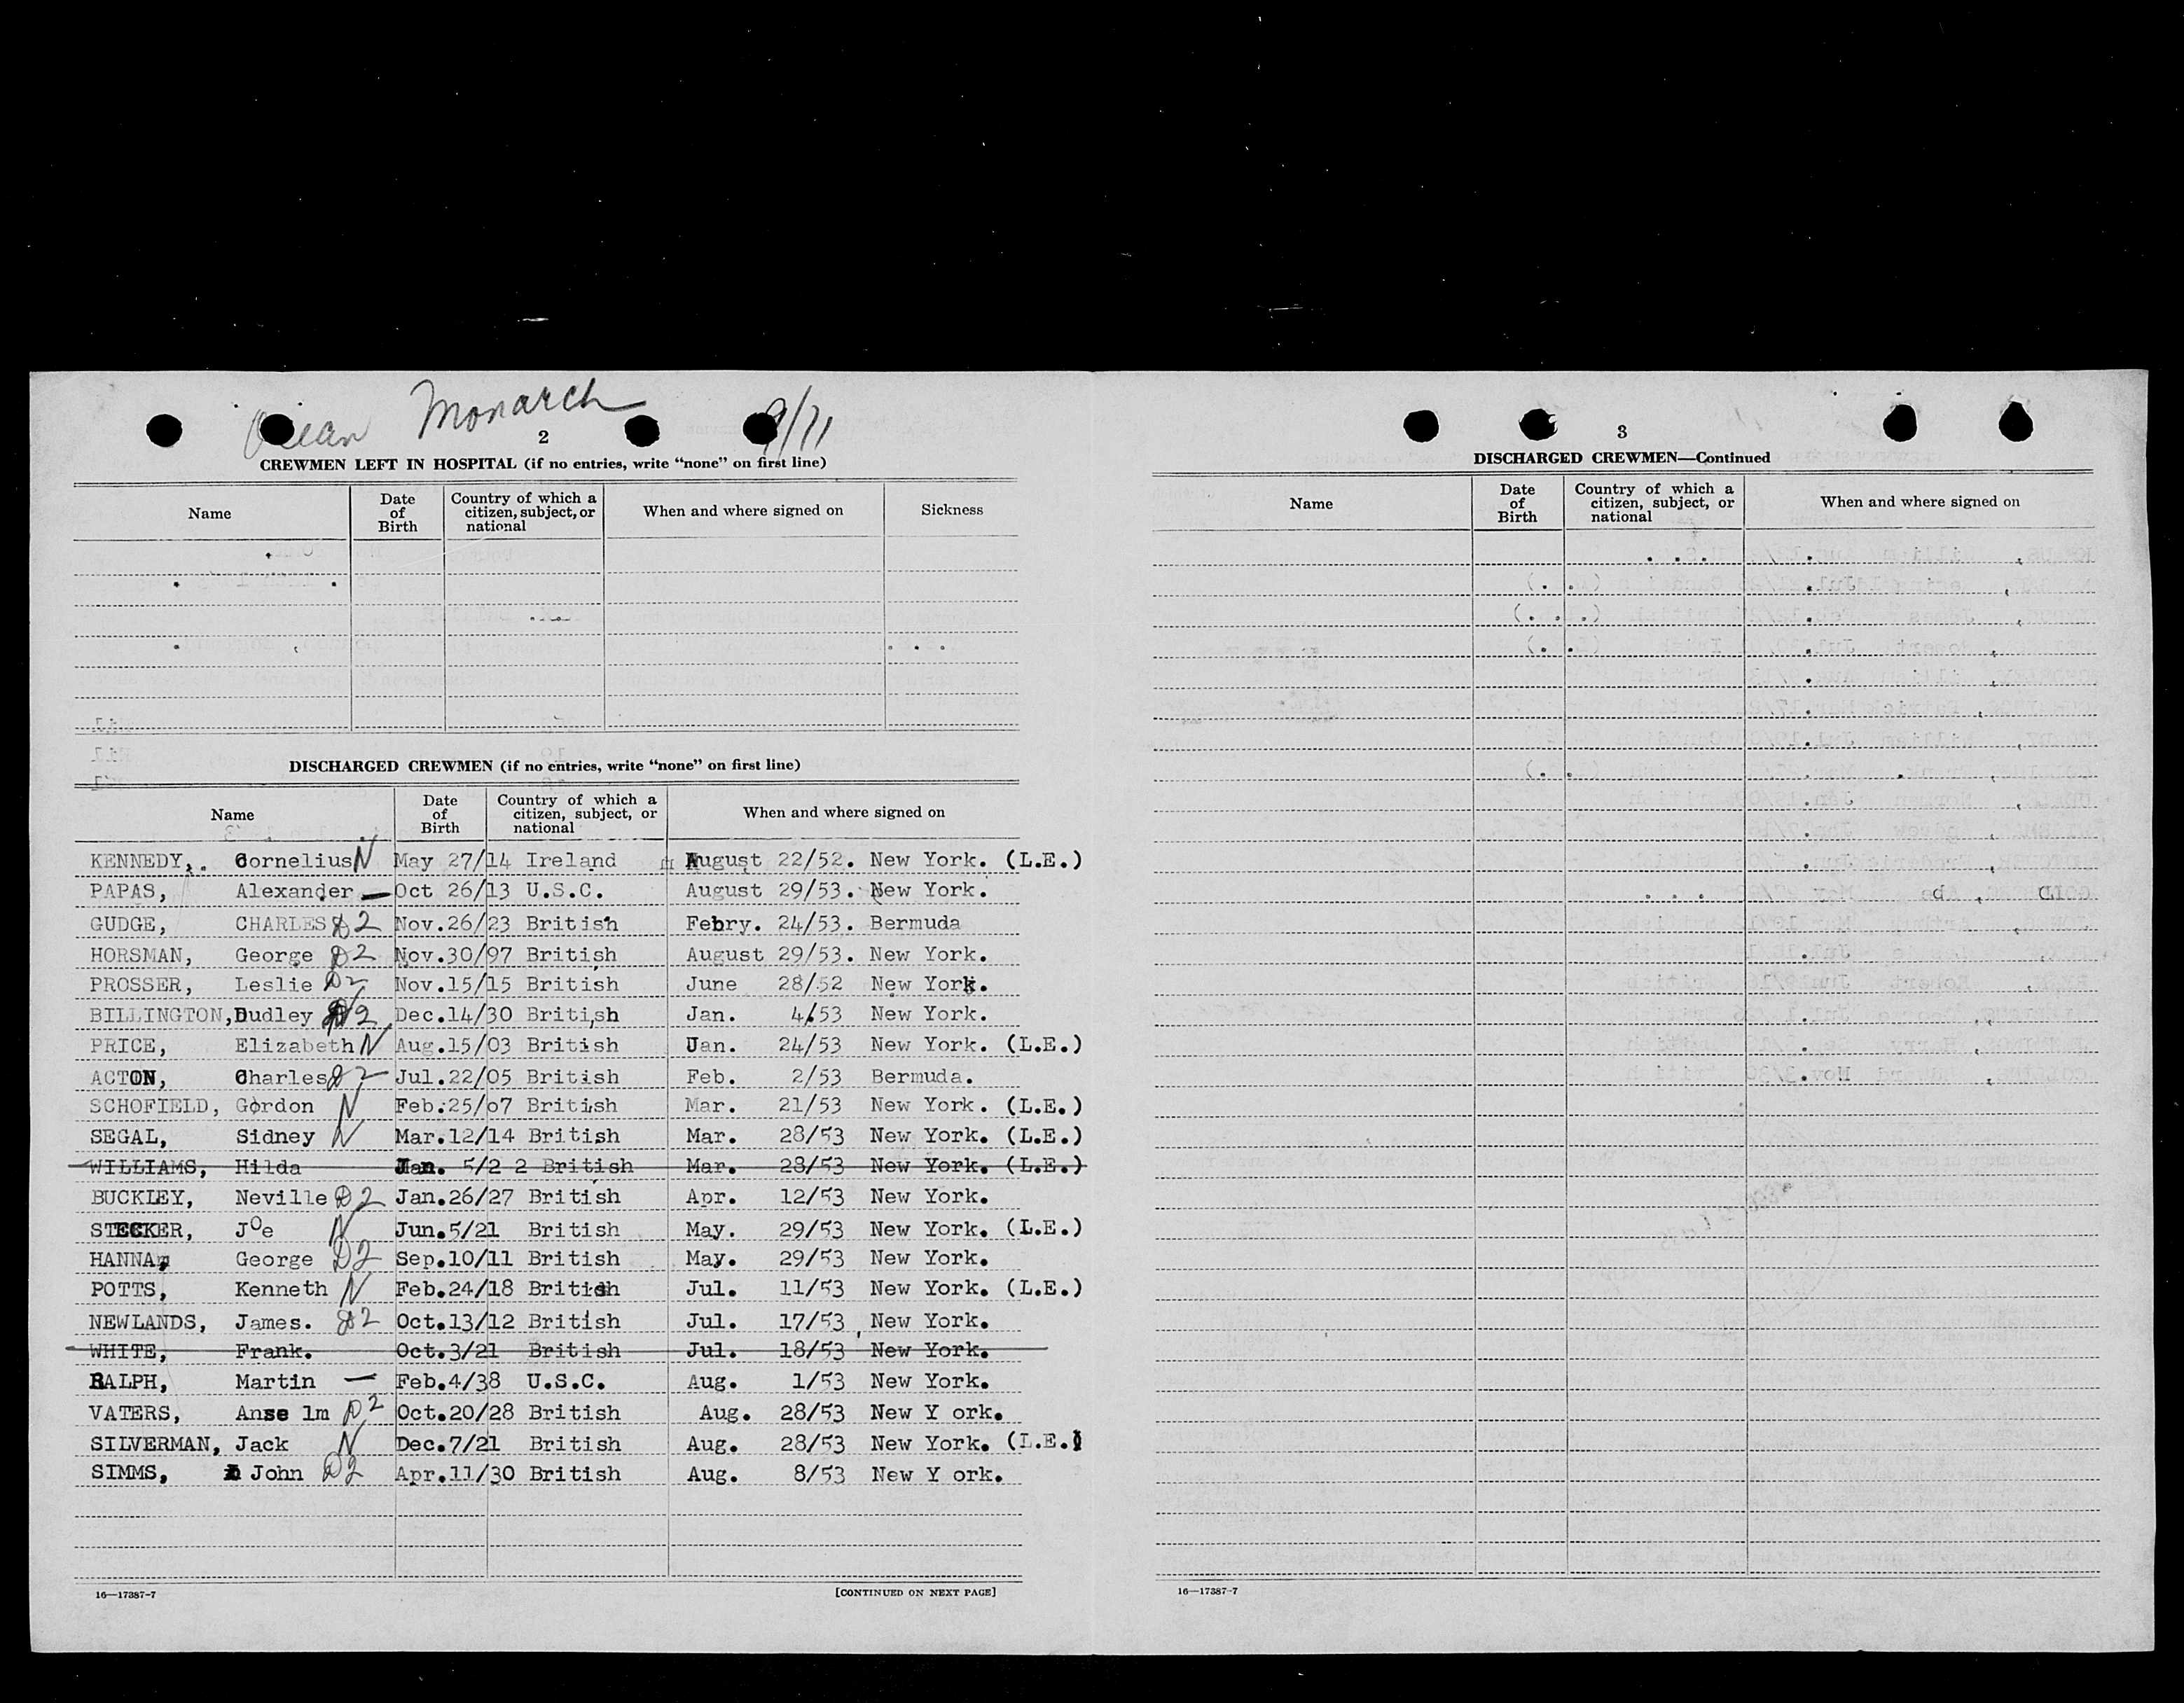 Ocean Monarch 9/11
2
CREWMEN LEFT IN HOSPITAL (if no entries, write “none” on first line)
Name Date of Birth Country of which a citizen, subject, or national When and where signed on Sickness
DISCHARGED CREWMEN (if no entries, write “none” on first line)
Name Date of Birth Country of which a citizen, subject, or national When and where signed on
KENNEDY, Cornelius N May 27/14 Ireland August 22/52. New York. (L.E.)
PAPAS, Alexander — Oct 26/13 U.S.C. August 29/53. New York.
GUDGE, CHARLES D2 Nov.26/23 British Febry. 24/53. Bermuda
HORSMAN, George D2 Nov.30/97 British August 29/53. New York.
PROSSER, Leslie D2 Nov.15/15 British June 28/52 New York.
BILLINGTON, Dudley D2 Dec.14/30 British Jan. 4/53 New York.
PRICE, Elizabeth N Aug.15/03 British Jan. 24/53 New York. (L.E.)
ACTON, Charles D2 Jul.22/05 British Feb. 2/53 Bermuda.
SCHOFIELD, Gordon N Feb.25/o7 British Mar. 21/53 New York. (L.E.)
SEGAL, Sidney N Mar.12/14 British Mar. 28/53 New York. (L.E.)
WILLIAMS, Hilda Jan. 5/2 2 British Mar. 28/53 New York. (L.E.)
BUCKLEY, Neville D2 Jan.26/27 British Apr. 12/53 New York.
STECKER, Joe N Jun.5/21 British May. 29/53 New York. (L.E.)
HANNA, George D2 Sep.10/11 British May. 29/53 New York.
POTTS, Kenneth N Feb.24/18 British Jul. 11/53 New York. (L.E.)
NEWLANDS, James. D2 Oct.13/12 British Jul. 17/53 New York.
WHITE, Frank. Oct.3/21 British Jul. 18/53 New York.
RALPH, Martin — Feb.4/38 U.S.C. Aug. 1/53 New York.
VATERS, Anse lm D2 Oct.20/28 British Aug. 28/53 New Y ork.
SILVERMAN, Jack N Dec.7/21 British Aug. 28/53 New York. (L.E.)
SIMMS, John D2 Apr.11/30 British Aug. 8/53 New Y ork.
16—17387-7 [CONTINUED ON NEXT PAGE]
3
DISCHARGED CREWMEN—Continued
Name Date of Birth Country of which a citizen, subject, or national When and where signed on
16—17387-7